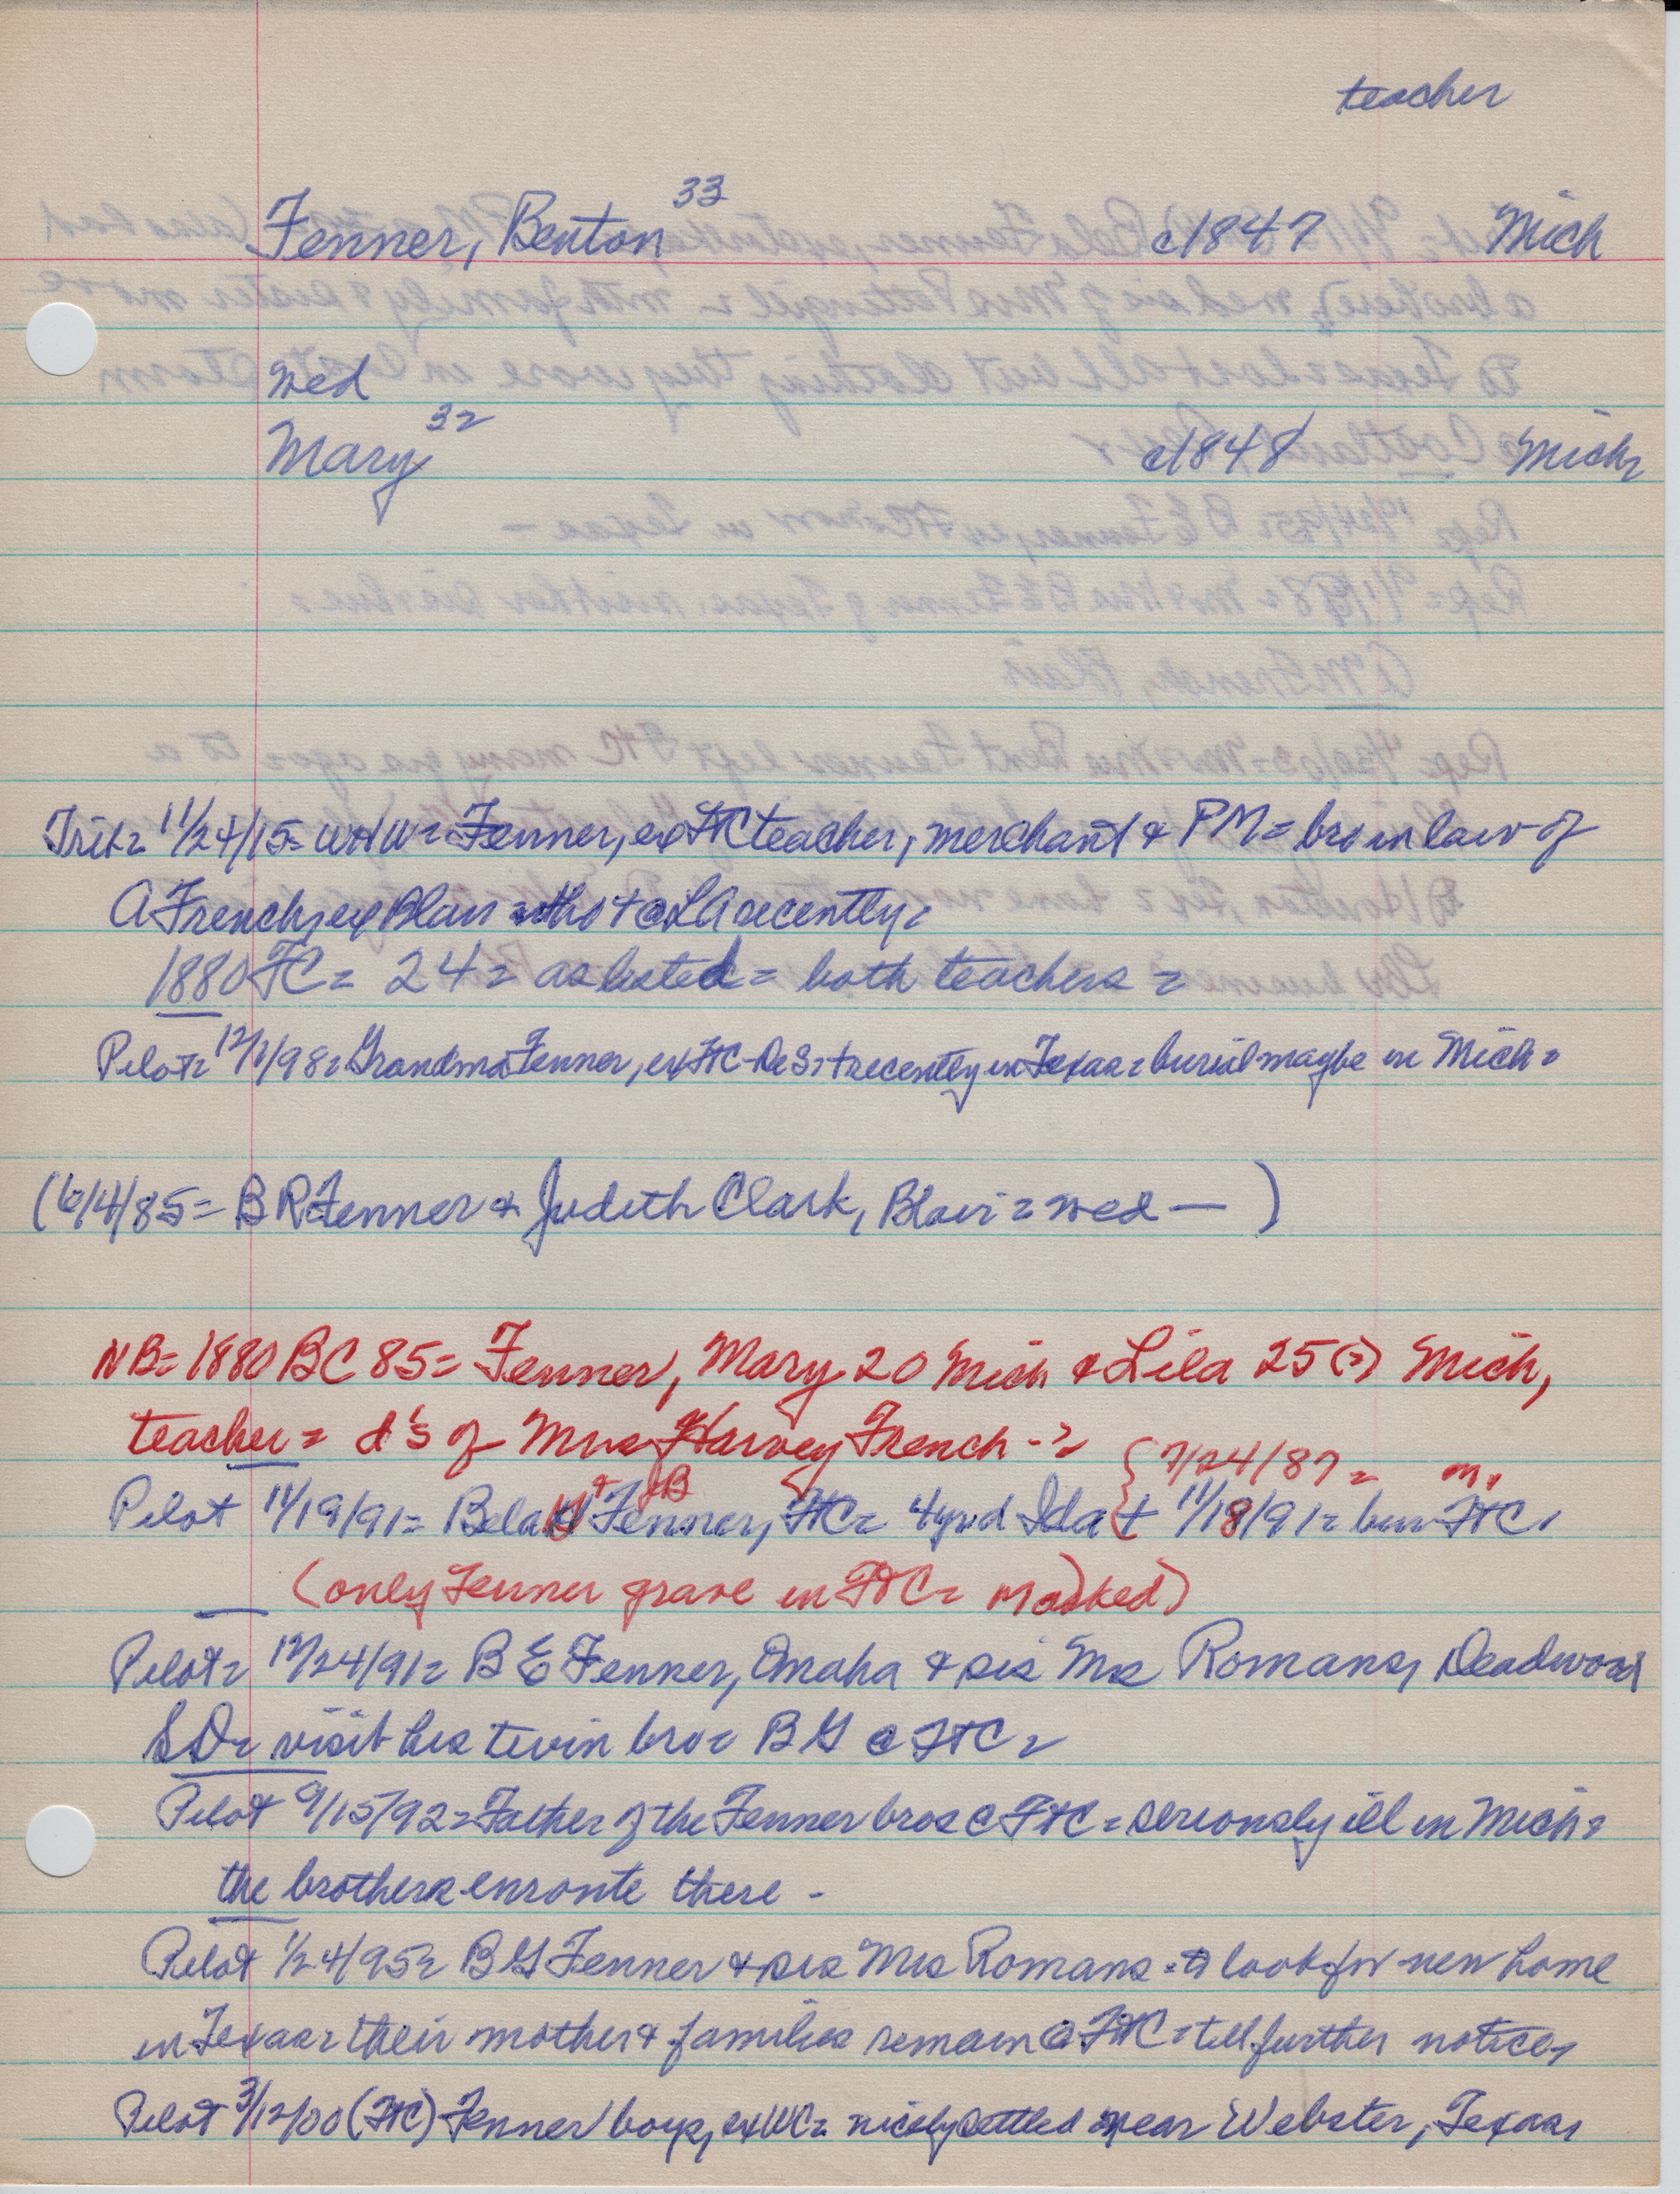 teacher
Fenner, Benton 33 c1847 Mich
wed
Mary 32 c1848 Mich
Trib= 11/24/15= WHW= Fenner, ex FtC teacher, merchant & PM= bro in law of
A French, ex Blair = who + @ LA recently=
1880 FC= 24= as listed= both teachers =
Pilot= 12/1/98= Grandma Fenner, ex FtC-DeS= + recently in Texas= burial maybe in Mich=
(6/4/85= B R Fenner & Judith Clark, Blair= wed — )
NB= 1880 BC 85= Fenner, Mary 20 Mich & Lila 25(?) Mich,
teacher= d's of Mrs Harvey French -?
{ 7/24/87= m,
Pilot 11/19/91= Bela Fenner, FtC= 4 yr d Ida + 11/18/91= bur FtC,
& JB
(only Fenner grave in FtC= marked)
Pilot= 12/24/91= B E Fenner, Omaha & sis Mrs Romans, Deadwood
SD= visit his twin bro= B G @ FtC=
Pilot 9/15/92= Father of the Fenner bros @ FtC= seriously ill in Mich=
the brothers enroute there -
Pilot 1/24/95= B G Fenner & sis Mrs Romans= to look for new home
in Texas= their mother & families remain @ FtC= till further notice,
Pilot 3/12/00 (FtC) Fenner boys, ex WC= nicely settled near Webster, Texas,